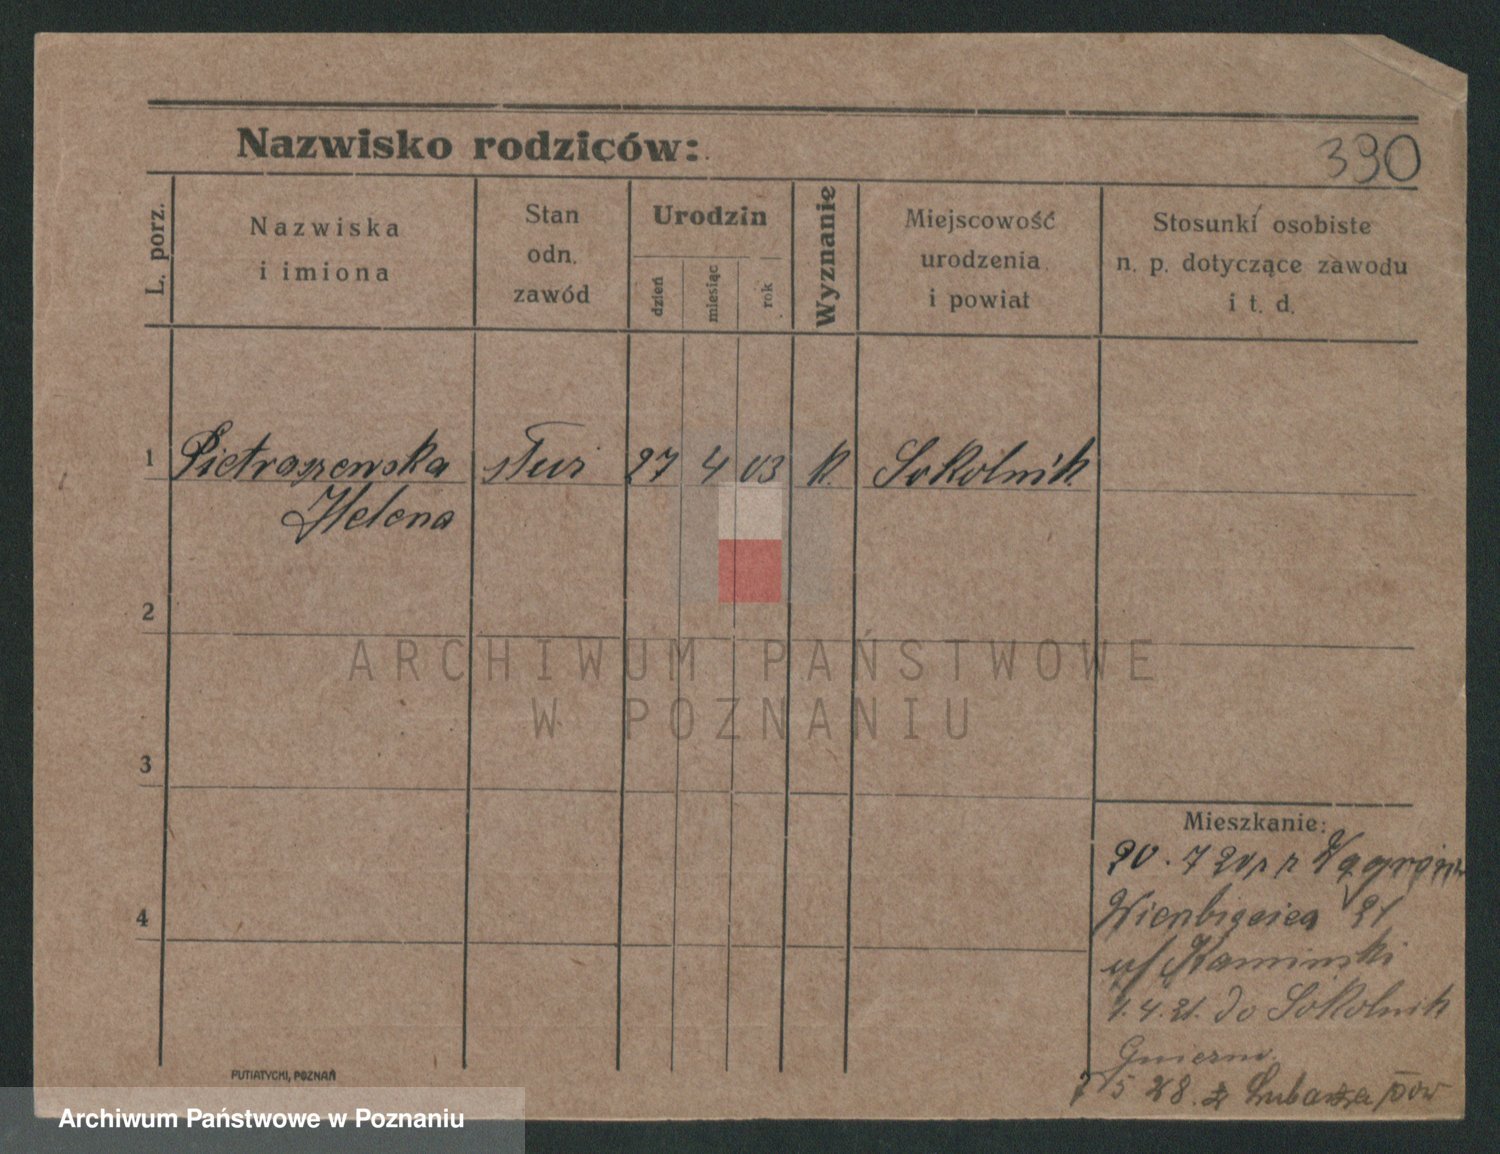 Nazwisko rodziców:
390
L. porz.
Nazwiska
i imiona
Stan
odn.
zawód
Urodzin
dzień
miesiąc
rok
Wyznanie
Miejscowość
urodzenia
i powiat
Stosunki osobiste
n. p. dotyczące zawodu
i t. d.
1 Pietraszewska 27 4 03 k. Sokolnik
Helena
2
ARCHIWUM PAŃSTWOWE
W POZNANIU
3
4
Mieszkanie:
20. 7
21
Kaminski
1. 4. 21. do Sokolnik
Gniezno.
5 28. z Lubasza pow
PUTIATYCKI, POZNAŃ
Archiwum Państwowe w Poznaniu